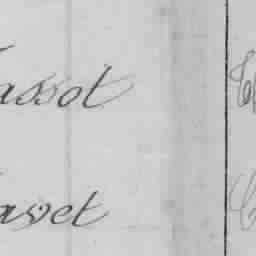 assot
avet